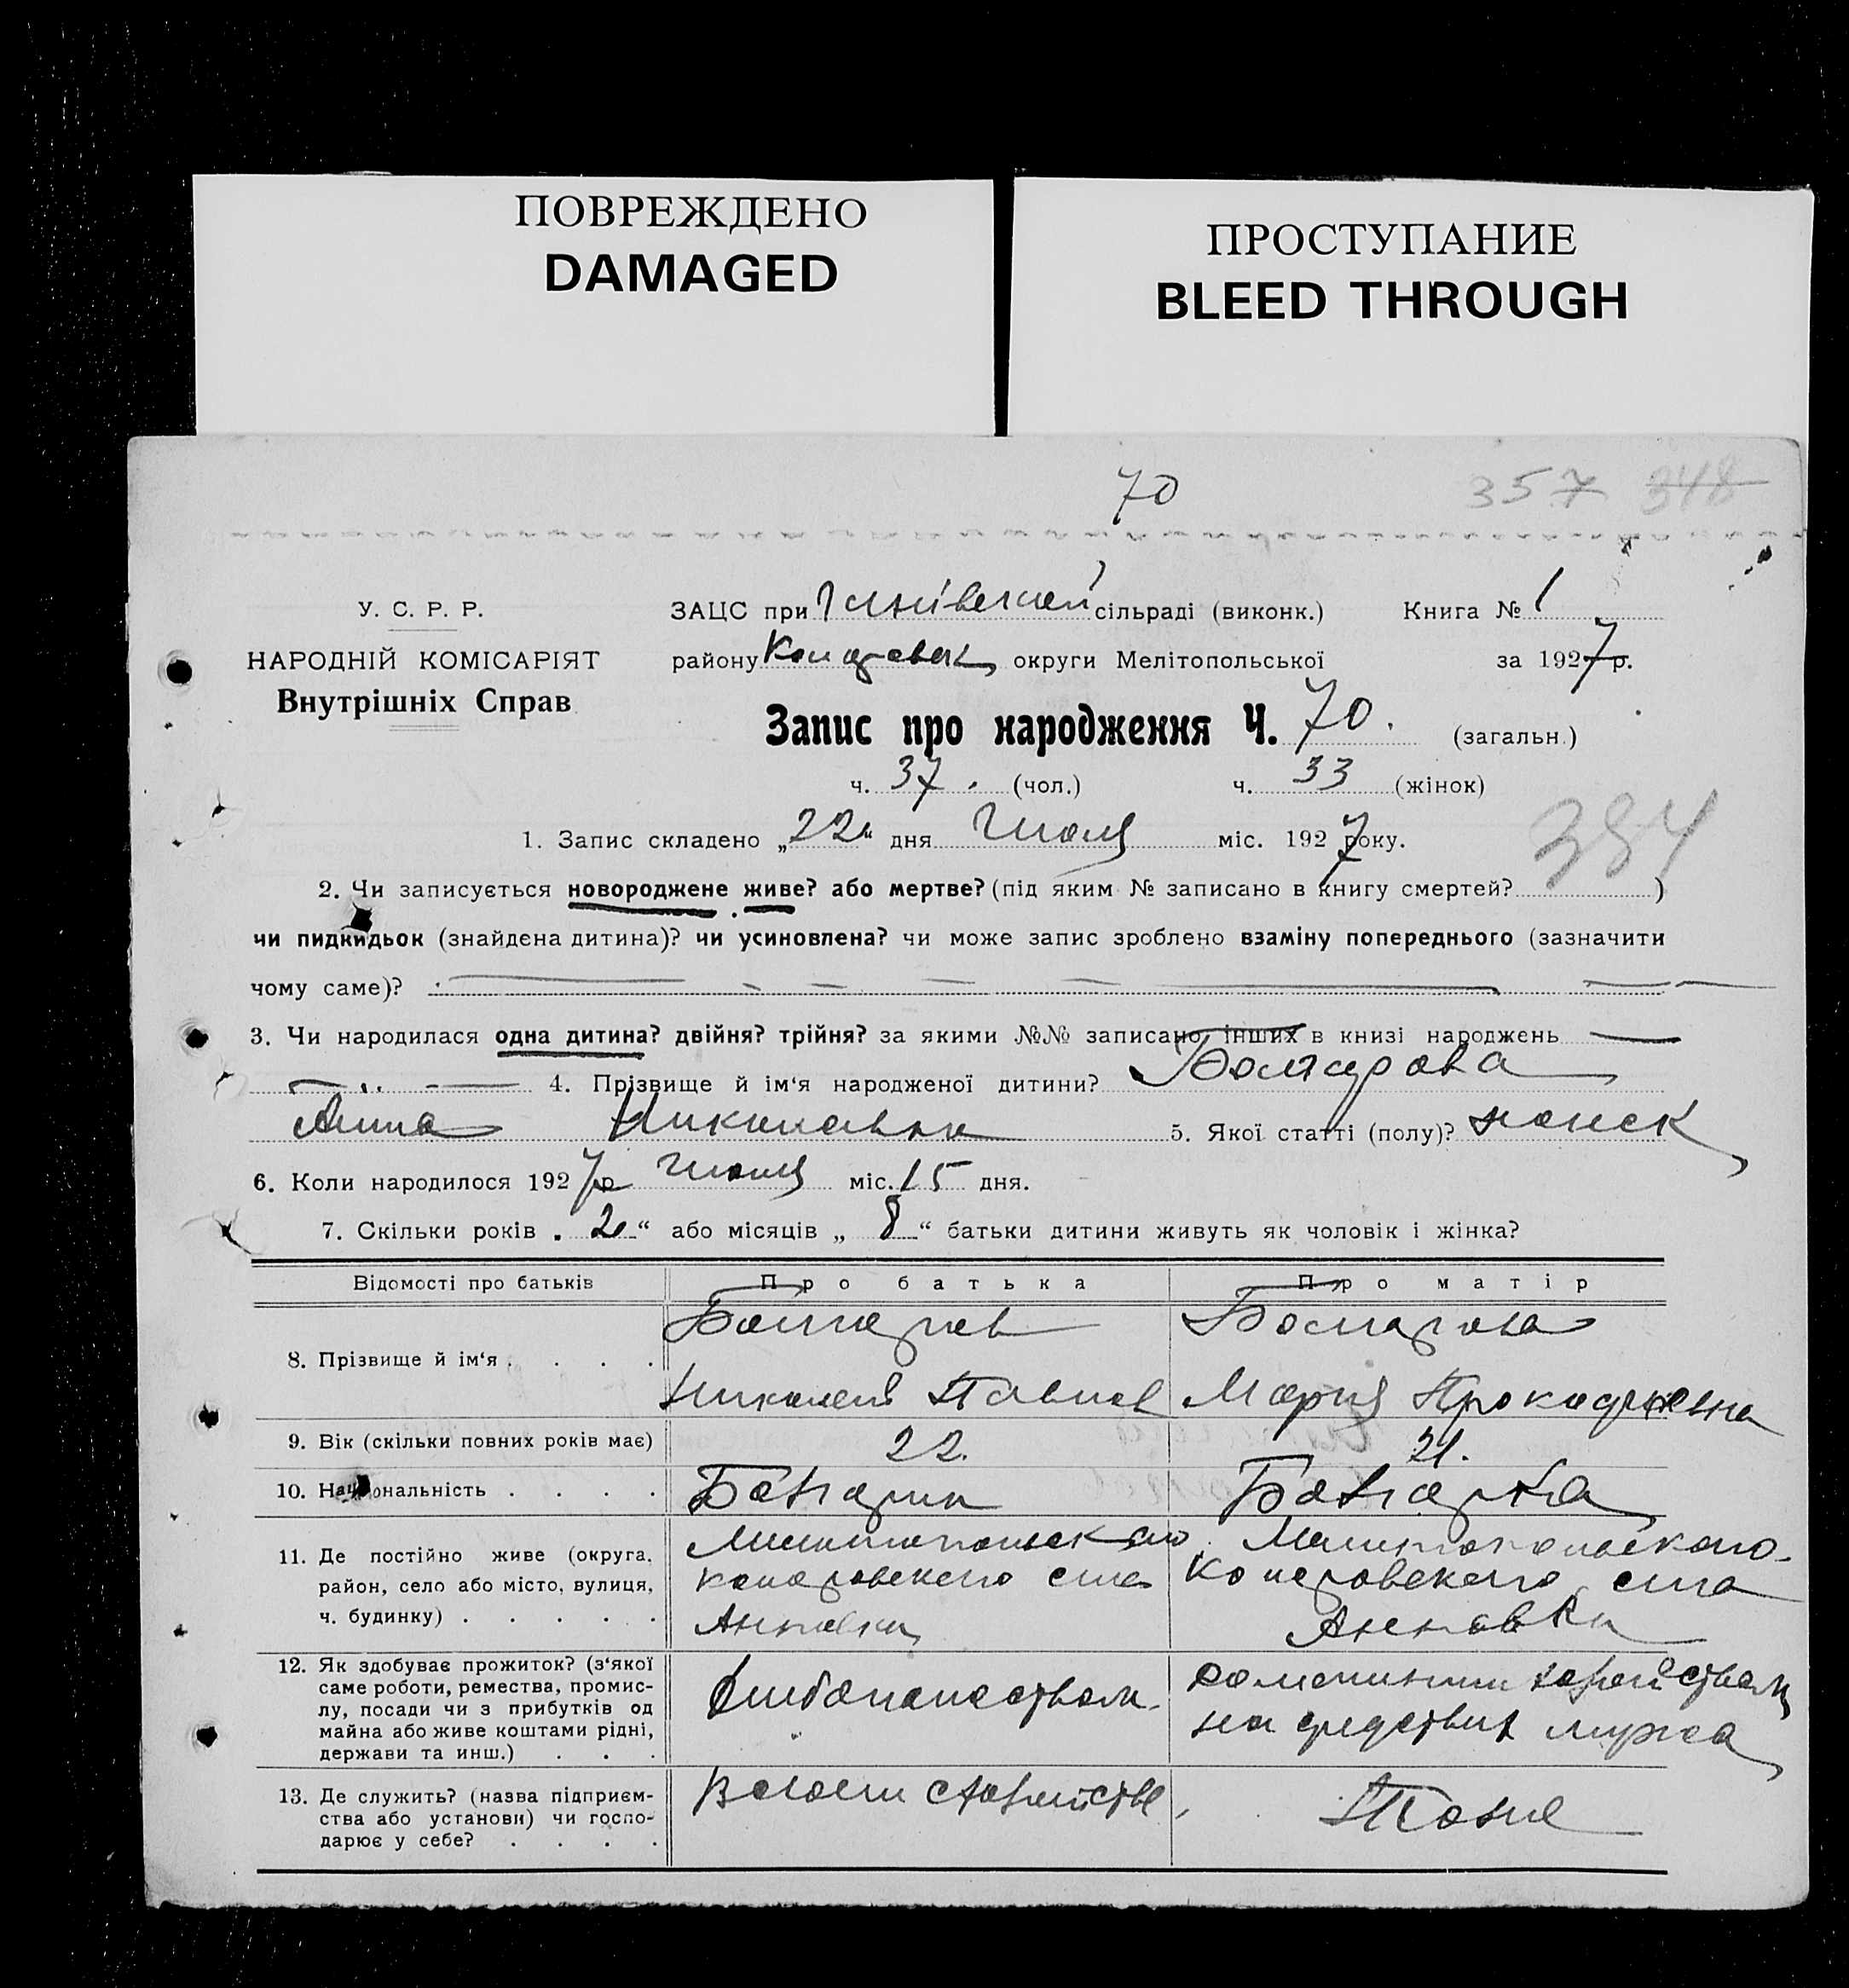 ПОВРЕЖДЕНО
DAMAGED
ПРОСТУПАНИЕ
BLEED THROUGH
70 357 348
У. С. Р. Р.
НАРОДНІЙ КОМІСАРІЯТ
Внутрішніх Справ
ЗАЦС при сільраді (виконк.) Книга № 1
району округи Мелітопольської за 1927 р.
Запис про народження Ч. 70. (загальн.)
ч. 37. (чол.) ч. 33 (жінок)
1. Запис складено „22“ дня Июля міс. 1927 року.
384
2. Чи записується новороджене живе? або мертве? (під яким № записано в книгу смертей? )
чи пидкидьок (знайдена дитина)? чи усиновлена? чи може запис зроблено взаміну попереднього (зазначити
чому саме)?
3. Чи народилася одна дитина? двійня? трійня? за якими №№ записано інших в книзі народжень
4. Прізвище й ім‘я народженої дитини?
Анна 5. Якої статті (полу)? женск
6. Коли народилося 1927 р. Июля міс. 15 дня.
7. Скільки років „ 2 “ або місяців „ 8 “ батьки дитини живуть як чоловік і жінка?
Відомості про батьків Про батька Про матір
8. Прізвище й ім‘я . . . .
Николай Павлов Мария Прокофьевна
9. Вік (скільки повних років має) 22. 21.
10. Національність . . . . Болгарин Болгарка
11. Де постійно живе (округа, район, село або місто, вулиця, ч. будинку) . . . . .
Мелитопольского Мелитопольского
села села
Анновки Анновки
12. Як здобуває прожиток? (з‘якої саме роботи, ремества, промислу, посади чи з прибутків од майна або живе коштами рідні, держави та инш.) . . .
Хлебопашеством домашним хозяйством
на средствах мужа
13. Де служить? (назва підприємства або установи) чи господарює у себе? . . . .
В своем хозяйстве Тоже